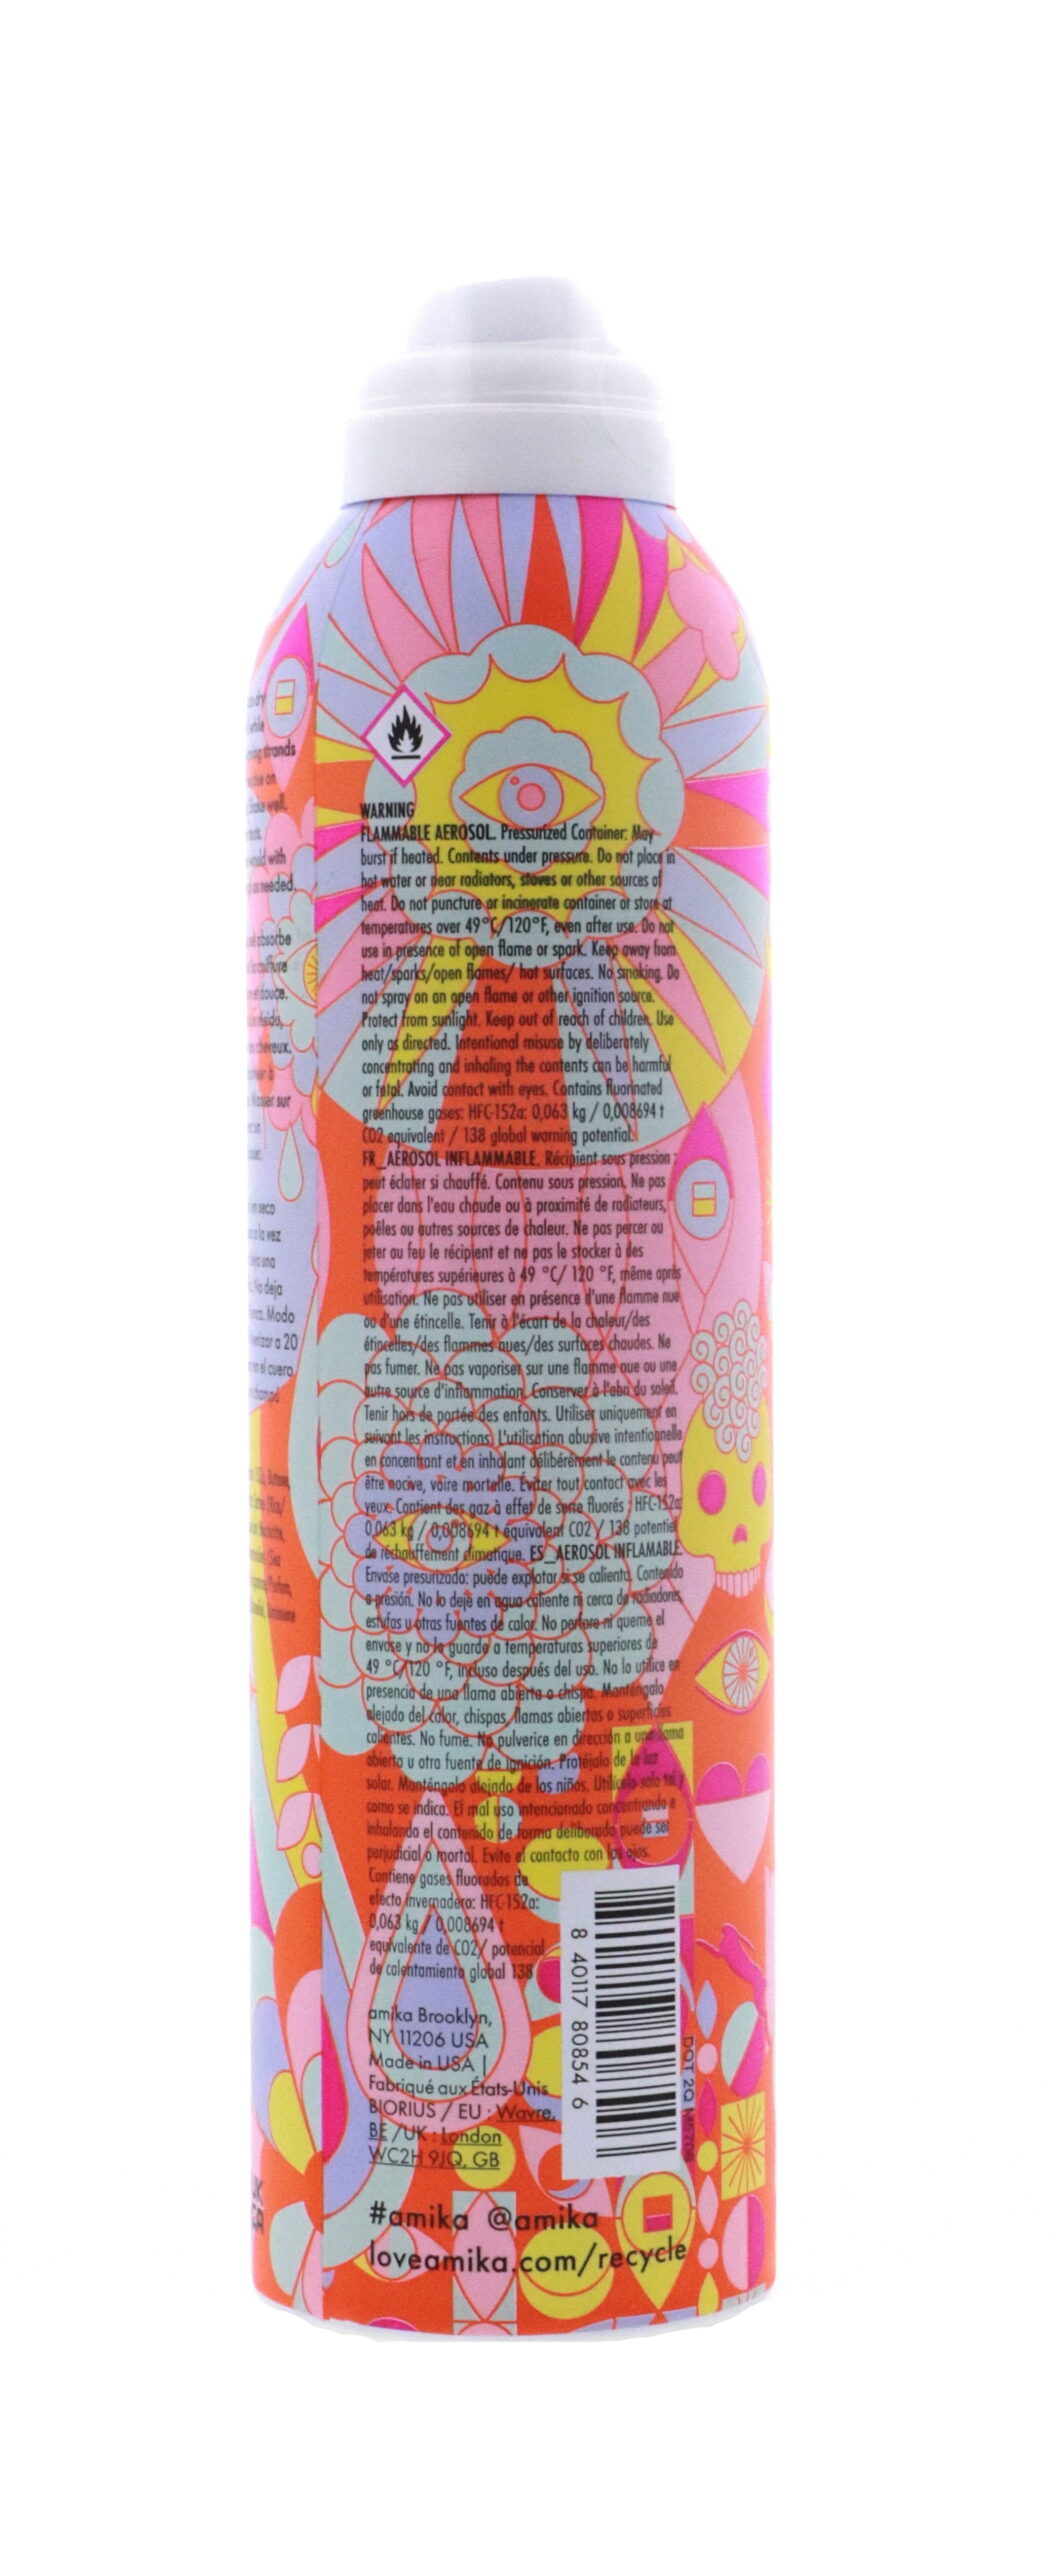 WARNING
FLAMMABLE AEROSOL. Pressurized Container: May
burst if heated. Contents under pressure. Do not place in
hot water or near radiators, stoves or other sources of
heat. Do not puncture or incinerate container or store at
temperatures over 49°C/120°F, even after use. Do not
use in presence of open flame or spark. Keep away from
heat/sparks/open flames/ hot surfaces. No smoking. Do
not spray on an open flame or other ignition source.
Protect from sunlight. Keep out of reach of children. Use
only as directed. Intentional misuse by deliberately
concentrating and inhaling the contents can be harmful
or fatal. Avoid contact with eyes. Contains fluorinated
greenhouse gases: HFC-152a: 0,063 kg / 0,008694 t
CO2 equivalent / 138 global warning potential.
FR_AÉROSOL INFLAMMABLE. Récipient sous pression :
peut éclater si chauffé. Contenu sous pression. Ne pas
placer dans l'eau chaude ou à proximité de radiateurs,
poêles ou autres sources de chaleur. Ne pas percer ou
jeter au feu le récipient et ne pas le stocker à des
températures supérieures à 49 °C/ 120 °F, même après
utilisation. Ne pas utiliser en présence d'une flamme nue
ou d'une étincelle. Tenir à l'écart de la chaleur/des
étincelles/des flammes nues/des surfaces chaudes. Ne
pas fumer. Ne pas vaporiser sur une flamme nue ou une
autre source d'inflammation. Conserver à l'abri du soleil.
Tenir hors de portée des enfants. Utiliser uniquement en
suivant les instructions. L'utilisation abusive intentionnelle
en concentrant et en inhalant délibérément le contenu peut
être nocive, voire mortelle. Éviter tout contact avec les
yeux. Contient des gaz à effet de serre fluorés : HFC-152a:
0,063 kg / 0,008694 t équivalent CO2 / 138 potentiel
de réchauffement climatique. ES_AEROSOL INFLAMABLE.
Envase presurizado: puede explotar si se calienta. Contenido
a presión. No lo deje en agua caliente ni cerca de radiadores,
estufas u otras fuentes de calor. No perfore ni queme el
envase y no lo guarde a temperaturas superiores de
49 °C/120 °F, incluso después del uso. No lo utilice en
presencia de una llama abierta o chispa. Manténgalo
alejado del calor, chispas, llamas abiertas o superficies
calientes. No fume. No pulverice en dirección a una llama
abierta u otra fuente de ignición. Protéjalo de la luz
solar. Manténgalo alejado de los niños. Utilícelo solo tal y
como se indica. El mal uso intencionado concentrando e
inhalando el contenido de forma deliberada puede ser
perjudicial o mortal. Evite el contacto con los ojos.
Contiene gases fluorados de
efecto invernadero: HFC-152a:
0,063 kg / 0,008694 t
equivalente de CO2/ potencial
de calentamiento global 138
amika Brooklyn,
NY 11206 USA
Made in USA |
Fabriqué aux États-Unis
BIORIUS / EU : Wavre,
BE /UK : London
WC2H 9JQ, GB
8 40117 80854 6
DOT 2Q
#amika @amika
loveamika.com/recycle